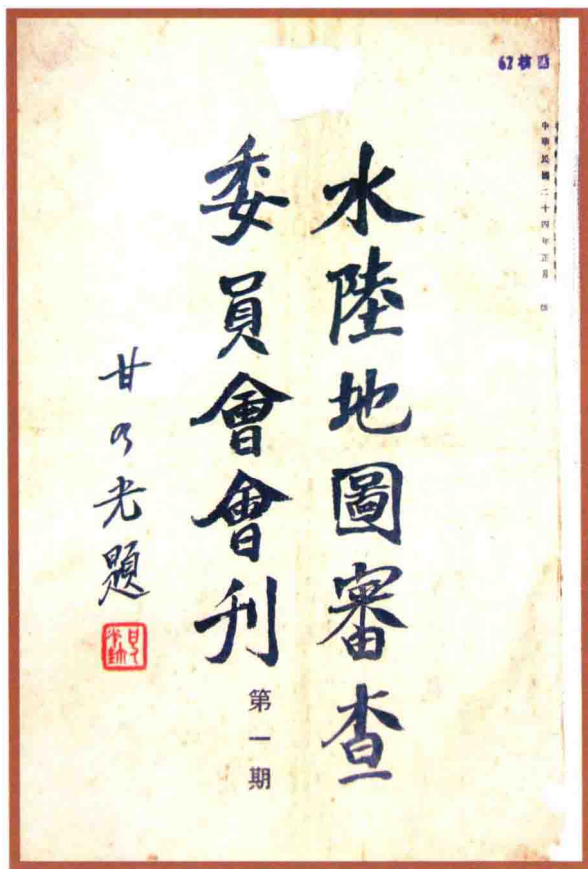 62核四
中華民國二十四年正月
水陸地圖審查
委員會會刊
第一期
甘乃光題